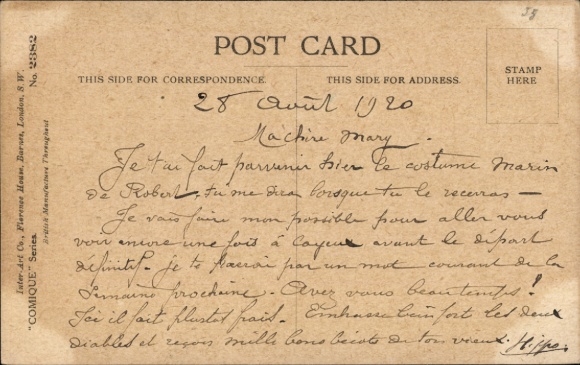 55
POST CARD
THIS SIDE FOR CORRESPONDENCE.
THIS SIDE FOR ADDRESS.
STAMP
HERE
28 Août 1920
Ma chère Mary.
Je t'ai fait parvenir hier le costume Marin
de Robert. tu me diras lorsque tu le recevras —
Je vais faire mon possible pour aller vous
voir encore une fois à Cayeux avant le départ
définitif. je te par un mot courant de la
Semaine prochaine. Avez vous beau temps!
Ici il fait plustot frais. Embrasse bien fort les deux
diables et reçois mille bons bécots de ton vieux. Hippo.
Inter-Art Co., Florence House, Barnes, London, S.W.
"COMIQUE" Series.
British Manufacture Throughout
No. 2382